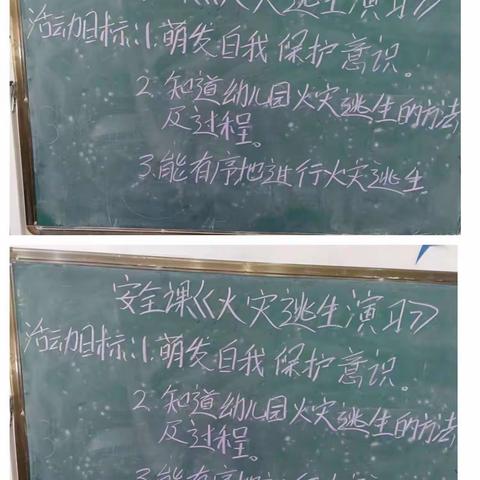 《火灾逃生演习》
活动目标:1.萌发自我保护意识。
2.知道幼儿园火灾逃生的方法
及过程。
3.能有序地进行火灾逃生
安全课《火灾逃生演习》
活动目标:1.萌发自我保护意识。
2.知道幼儿园火灾逃生的方法
及过程。
3.能有序地进行火灾